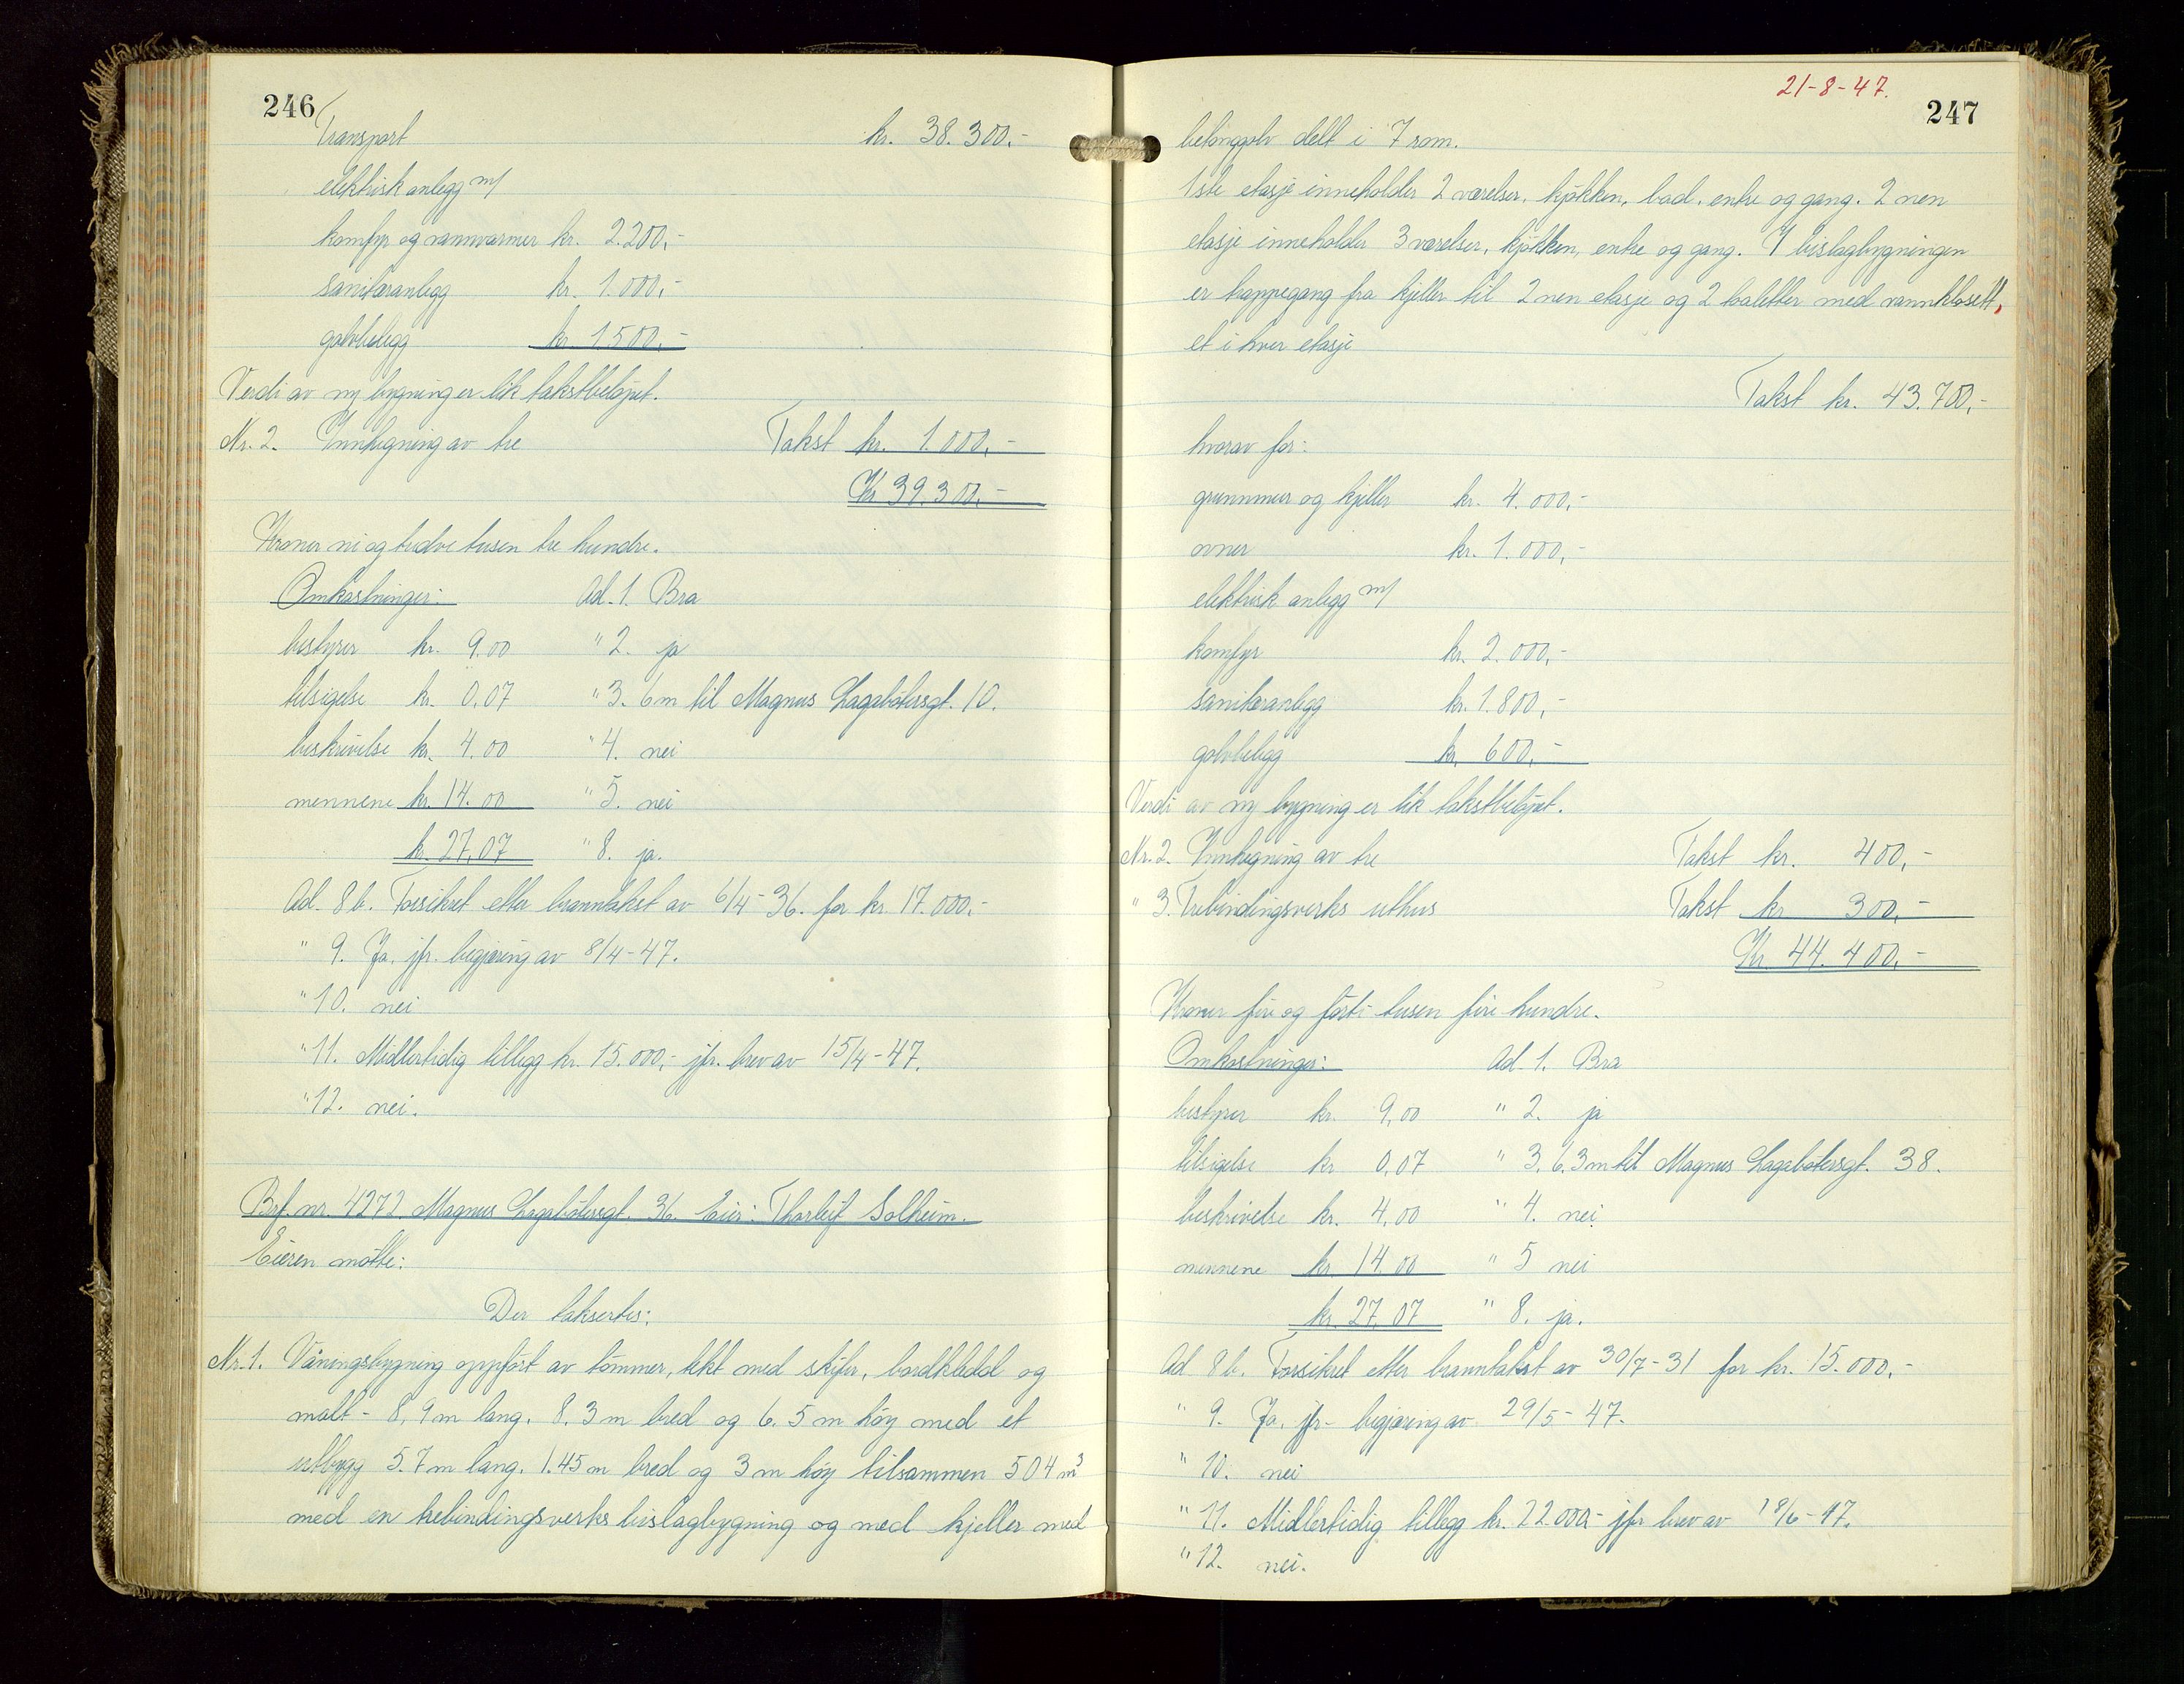 246
Transport kr. 38.300.-
elektrisk anlegg m/
komfyr og vannvarmer kr. 2.200,-
sanitæranlegg kr. 1.000,-
golvbelegg kr. 1500.-
Verdi av ny bygning er lik takstbeløpet.
Nr. 2. Innhegning av tre Takst kr. 1.000,-
Kr 39.300.-
Kroner ni og tredve tusen tre hundre.
Omkostninger: Ad. 1. Bra
bestyrer kr. 9.00 " 2. ja
tilsigelse kr. 0.07 " 3. 6m til Magnus Lagabøtersgt. 10.
beskrivelse kr. 4.00 " 4. nei
mennene kr. 14.00 " 5. nei
kr. 27.07 " 8. ja.
Ad. 8 b. Forsikret etter branntakst av 6/4-36. for kr. 17.000.-
" 9. Ja. jfr. begjæring av 8/4-47.
" 10. nei
" 11. Midlertidig tillegg kr. 15.000,- jfr. brev av 15/4-47.
" 12. nei.
Brf. nr. 4272 Magnus Lagabøtersgt. 36. Eier: Thorleif Solheim.
Eieren møtte:
Der taksertes:
Nr. 1. Våningsbygning oppført av tømmer, tekt med skifer, bordkledd og
malt - 8,9m lang, 8.3m bred og 6.5m høy med et
utbygg 5.7m lang, 1.45m bred og 3m høy tilsammen 504 m³
med en trebindingsverks bislagbygning og med kjeller med
21-8-47.
247
betonggolv delt i 7 rom.
1ste etasje inneholder 2 værelser, kjøkken, bad, entre og gang. 2nen
etasje inneholder 3 værelser, kjøkken, entre og gang. I bislagbygningen
er trappegang fra kjeller til 2nen etasje og 2 toaletter med vannklosett,
et i hver etasje
Takst kr. 43.700,-
hvorav for:
grunnmur og kjeller kr. 4.000,-
ovner kr. 1.000,-
elektrisk anlegg m/
komfyr kr. 2.000,-
sanitæranlegg kr. 1.800,-
golvbelegg kr. 600,-
Verdi av ny bygning er lik takstbeløpet.
Nr. 2. Innhegning av tre Takst kr. 400,-
" 3. Trebindingsverks uthus Takst kr 300,-
Kr. 44.400,-
Kroner fire og førti tusen fire hundre.
Omkostninger: Ad. 1. Bra
bestyrer kr. 9,00 " 2. ja
tilsigelse kr 0,07 " 3. 6,3m til Magnus Lagabøtersgt. 38.
beskrivelse kr. 4,00 " 4. nei
mennene kr. 14.00 " 5 nei
kr. 27.07 " 8. ja.
Ad 8 b. Forsikret etter branntakst av 30/7-31 for kr. 15.000,-
" 9. Ja. jfr- begjæring av 29/5-47.
" 10. nei
" 11. Midlertidig tillegg kr. 22.000.- jfr brev av 18/6-47.
" 12. nei.